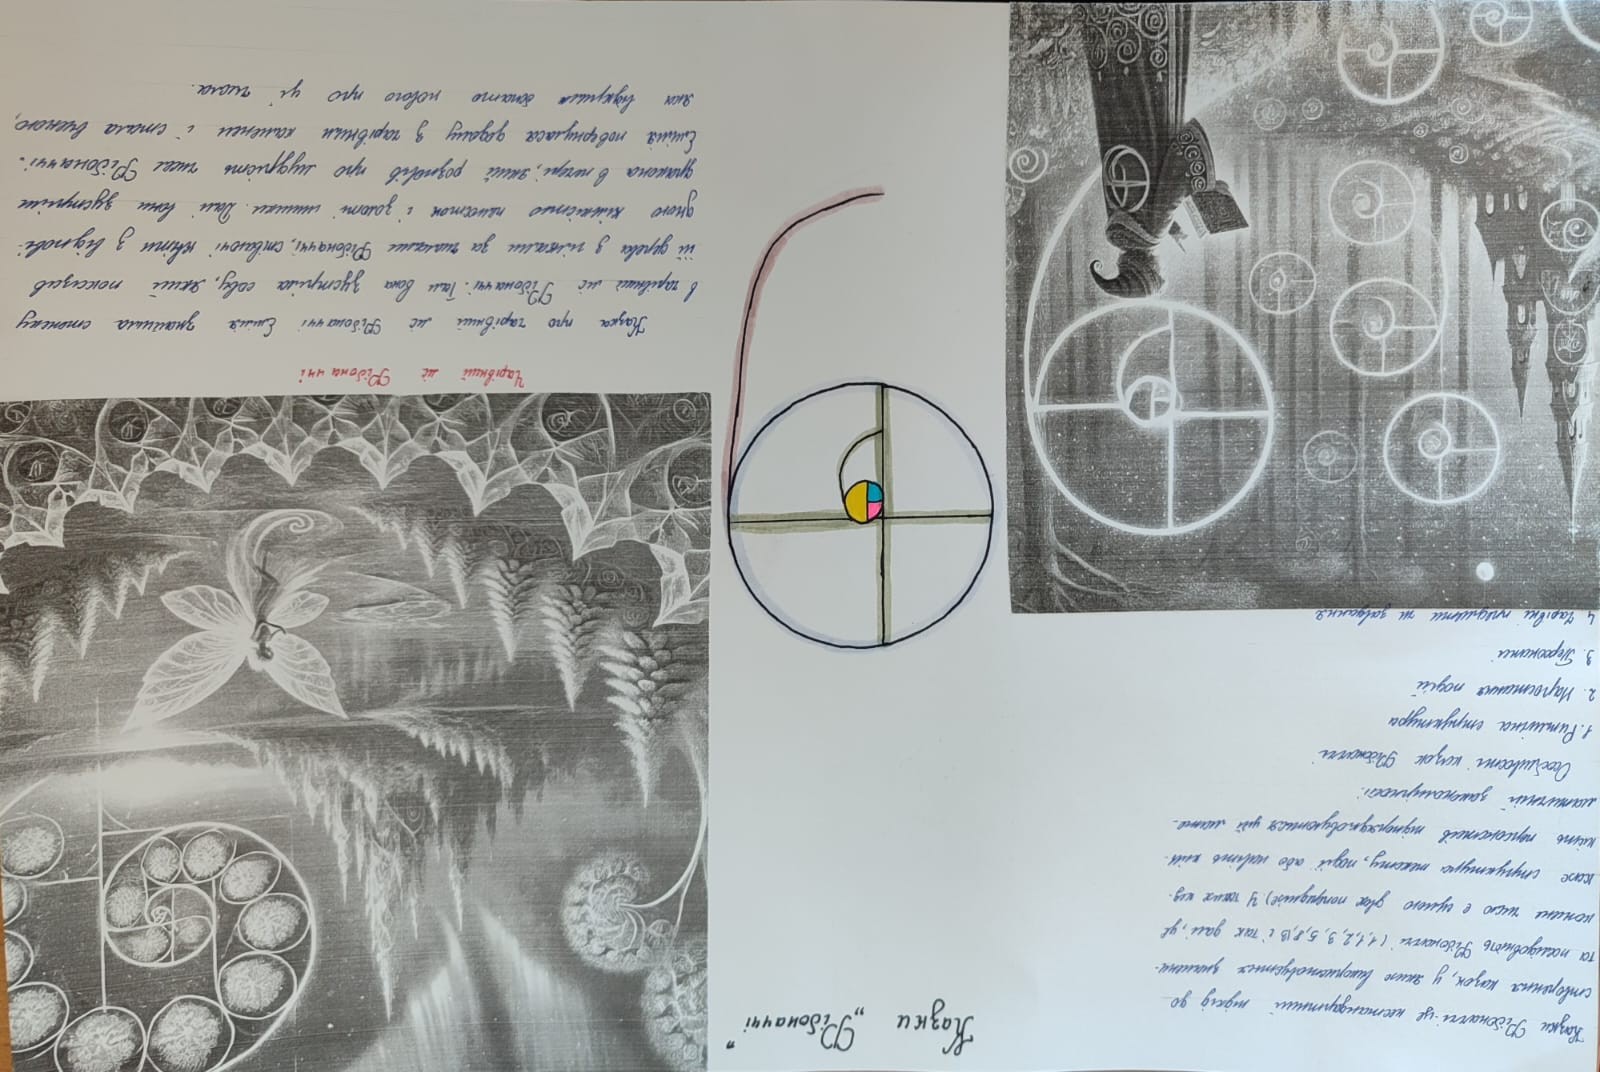 Казки „Фібоначчі"
Казки Фібоначчі-це нестандартний підхід до
створення казок, у яких використовується знамени-
та послідовність Фібоначчі (1,1,2,3,5,8,13 і так далі, де
кожне число є сумою двох попередніх). У таких каз-
ках структура тексту, події або навіть кіль-
кість персонажів підпорядковуються цій мате-
матичній закономірності.
Особливості казок Фібоначчі
1. Ритмічна структура
2. Наростання подій
3. Персонажі
4. Чарівні предмети та завдання
Чарівний ліс Фібоначчі
Казка про чарівний ліс Фібоначчі і Емілія знайшла стежку
в чарівний ліс Фібоначчі. Там вона зустріла сову, який показав
їй дерева з гілками за числами Фібоначчі, співаючі квіти з відпові-
дною кількістю пелюсток і золоті шишки. Далі вони зустріли
дракона в печері, який розповів про мудрість чисел Фібоначчі.
Емілія повернулася додому з чарівним каменем і стала вченою,
яка відкрила багато нового про ці числа.